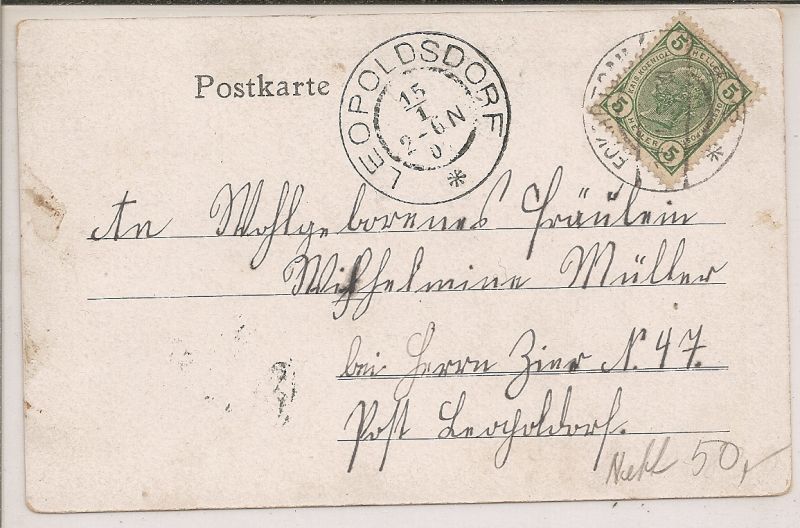 Postkarte
LEOPOLDSDORF
15
1
2-6N
0
*
5 HELLER 5
5 HELLER 5
*
An Wohlgeborenes Fräulein
Wilhelmine Müller
bei Herrn Zier N. 47.
Post Leopoldsdorf.
Nett 50,-